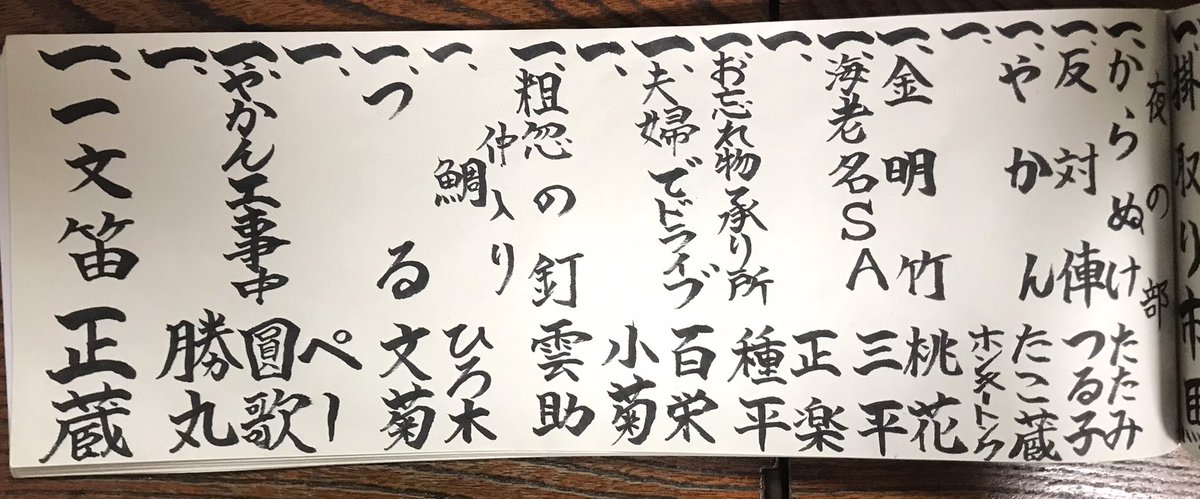 一、掛取り 市馬
夜の部
一、からぬけ たたみ
一、反対俥 つる子
一、やかん たこ蔵
一、 ホンキートンク
一、金明竹 桃花
一、海老名SA 三平
一、 正楽
一、お忘れ物承り所 種平
一、夫婦でドライブ 百栄
一、 小菊
一、粗忽の釘 雲助
仲入り
一、鯛 ひろ木
一、つる 文菊
一、 ぺー
一、やかん工事中 圓歌
一、 勝丸
一、一文笛 正蔵